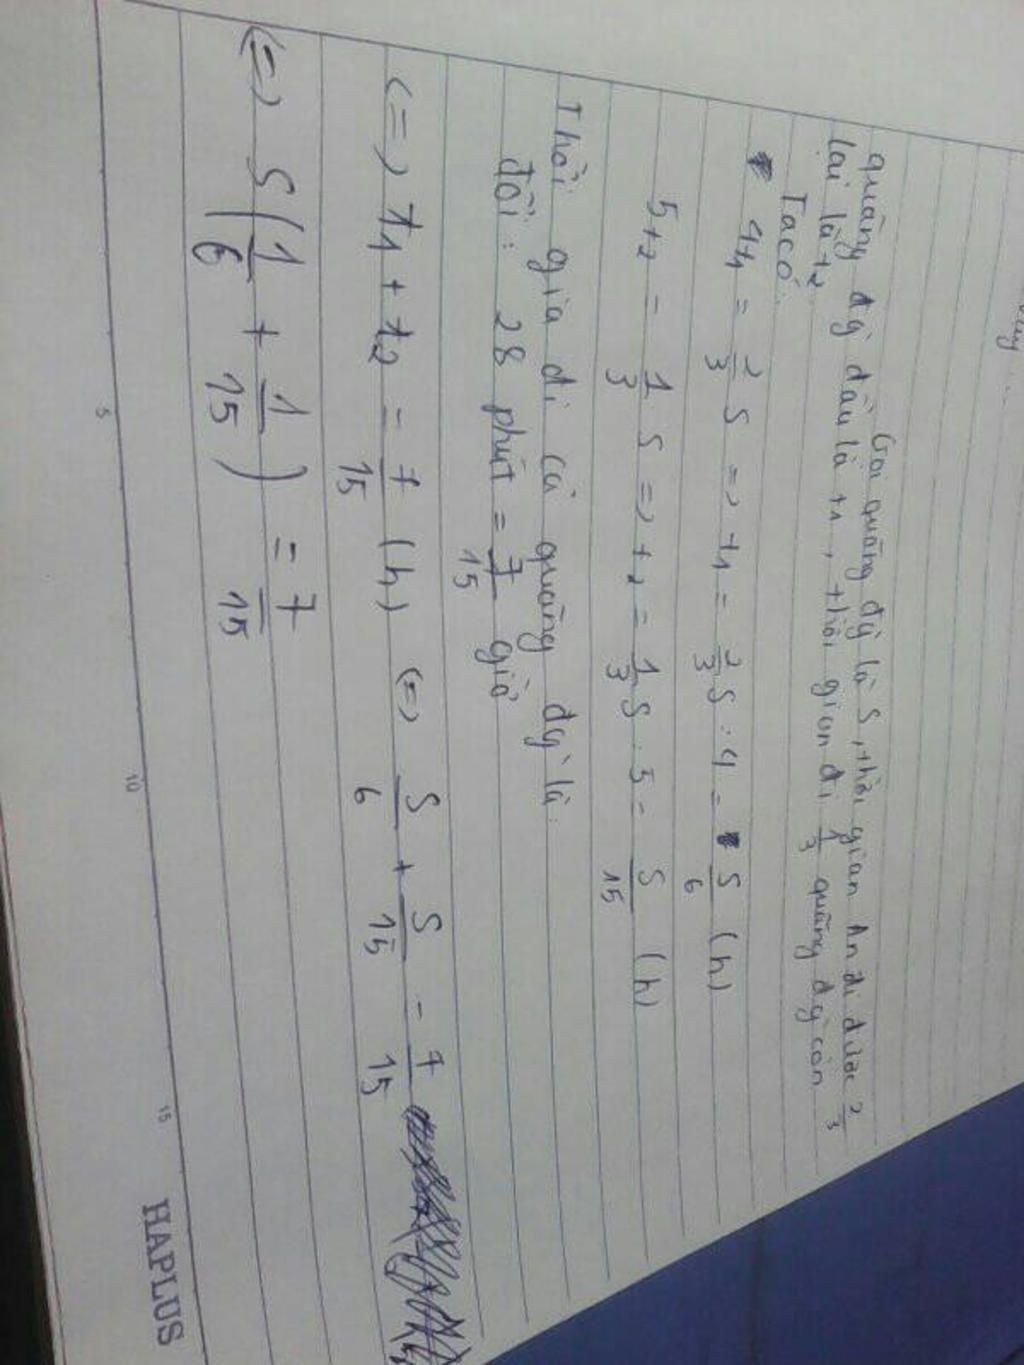 Gọi quãng đg là S, thời gian An đi được 2/3
quãng đg đầu là t1, thời gian đi 1/3 quãng đg còn
lại là t2
Ta có:
4t1 = 2/3 S => t1 = 2/3 S : 4 = S/6 (h)
5t2 = 1/3 S => t2 = 1/3 S : 5 = S/15 (h)
Thời gia đi cả quãng đg là:
đổi: 28 phút = 7/15 giờ
(=) t1 + t2 = 7/15 (h) (=) S/6 + S/15 = 7/15
(=) S(1/6 + 1/15) = 7/15
5 10 15
HAPLUS